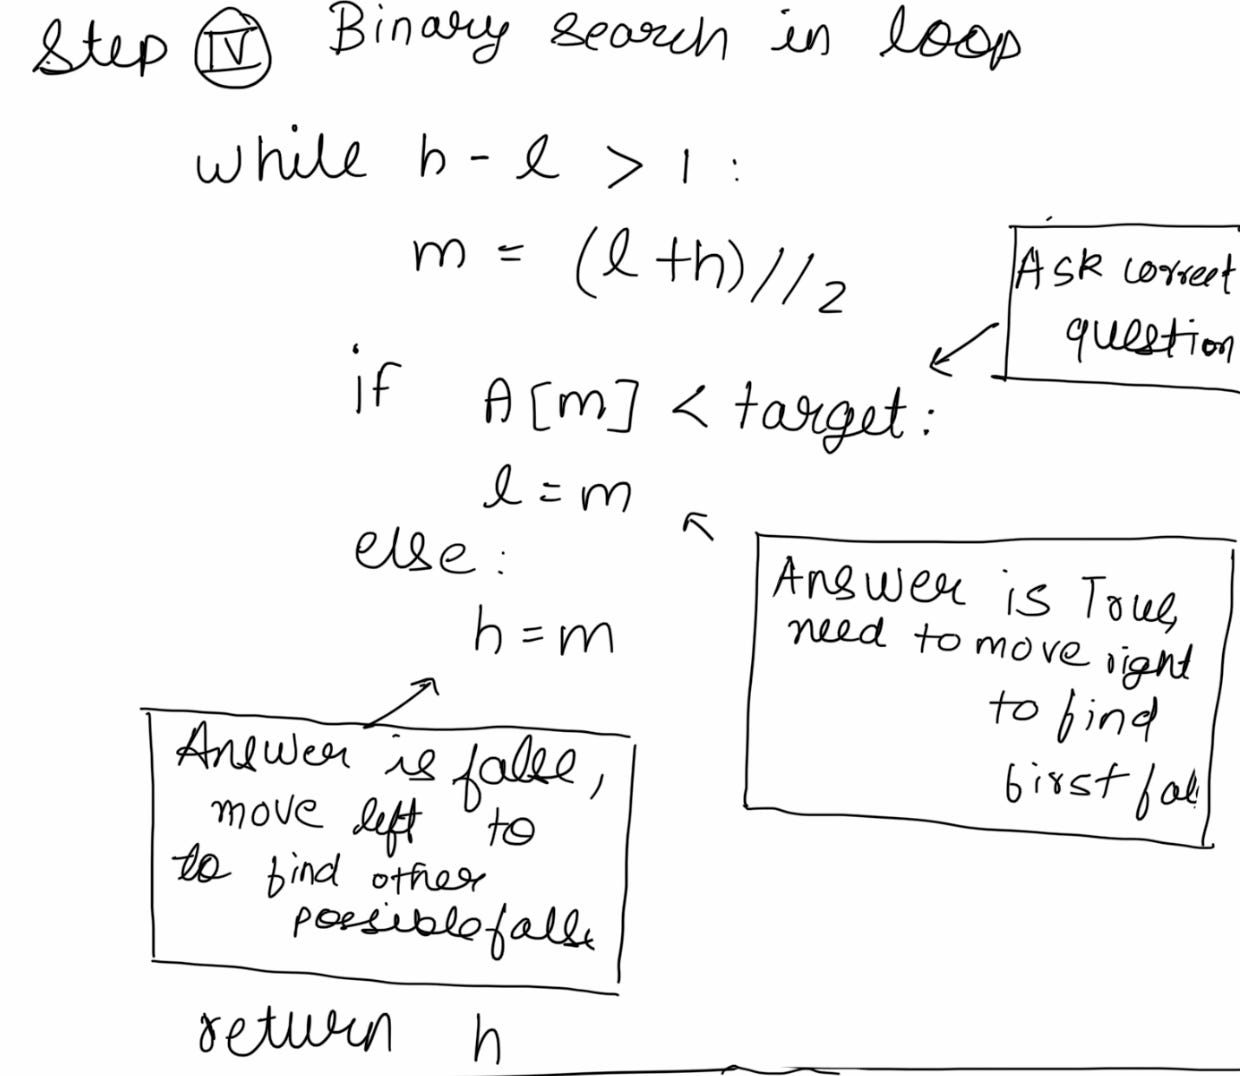 Step IV Binary search in loop
while h - l > 1 :
m = (l + h) // 2
Ask correct
question
if A[m] < target :
l = m
else :
h = m
Answer is True,
need to move right
to find
first fal
Answer is false,
move left to
to find other
possible false
return h